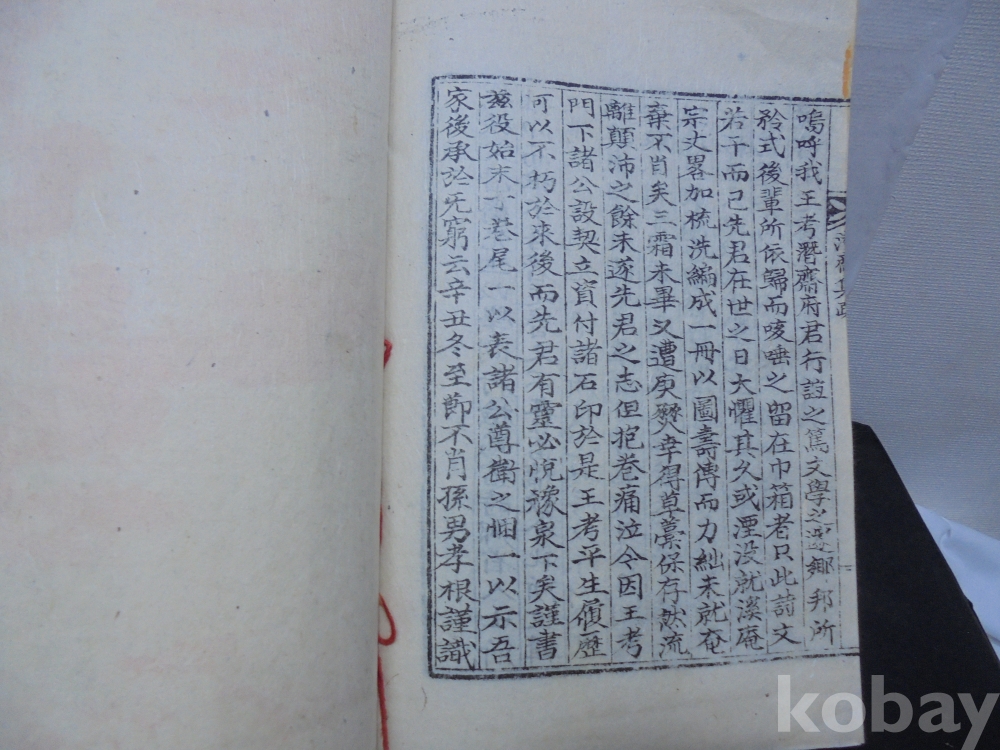 嗚呼我王考潛齋府君行誼之篤文學之邃鄉邦所
矜式後輩所依歸而咳唾之留在巾箱者只此詩文
若干而已先君在世之日大懼其久或湮沒就溪庵
宗丈畧加梳洗編成一冊以圖壽傳而力絀未就奄
棄不肖矣三霜未畢又遭庚燹幸得草藁保存然流
離顛沛之餘未遂先君之志但抱卷痛泣今因王考
門下諸公設契立資付諸石印於是王考平生履歷
可以不朽於來後而先君有靈必悅豫泉下矣謹書
玆役始末于卷尾一以表諸公尊衛之悃一以示吾
家後承於旡窮云辛丑冬至節不肖孫男孝根謹識
kobay